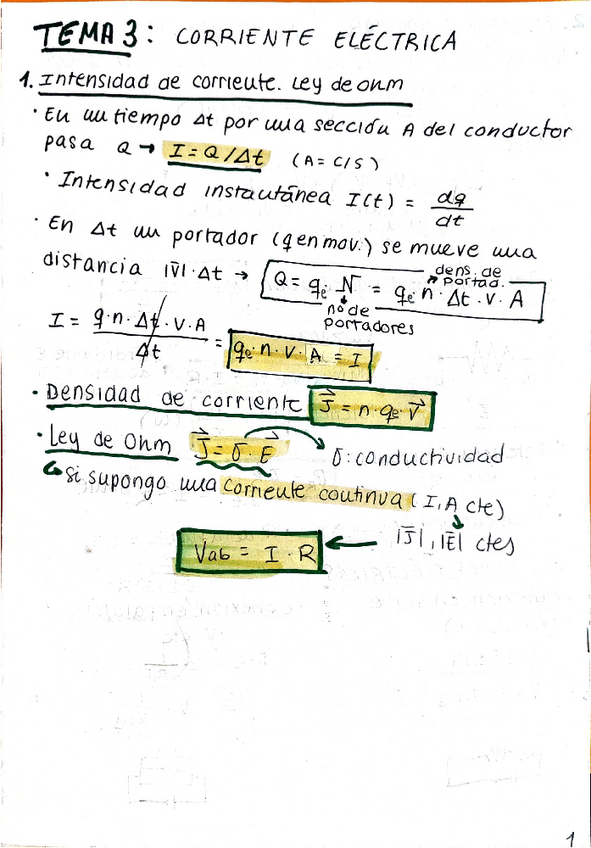 TEMA 3: CORRIENTE ELÉCTRICA
1. Intensidad de corriente. Ley de ohm
· En un tiempo Δt por una sección A del conductor
pasa Q → I = Q/Δt (A = C/S)
· Intensidad instantánea I(t) = dq/dt
· En Δt un portador (q en mov.) se mueve una
distancia |v̄|·Δt → Q = qe· N = qe· n · Δt · v · A
dens. de portad.
nº de portadores
I = q·n·Δt·v·A / Δt = qe·n·v·A = I
· Densidad de corriente J⃗ = n·qe·v⃗
· Ley de Ohm J⃗ = σ·E⃗ σ: conductividad
↳ si supongo una corriente continua (I, A cte)
|J̄|, |Ē| ctes
Vab = I · R
1